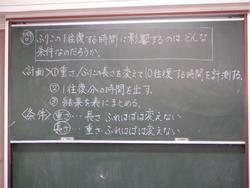 問 ふりこの1往復する時間に影響するのは、どんな
条件なのだろうか。
<計画>①重さ/ふりこの長さを変えて10往復する時間を計測する。
②1往復分の時間を出す。
③結果を表にまとめる。
<条件>重さ…長さ・ふれはばは変えない
長さ…重さ・ふれはばは変えない